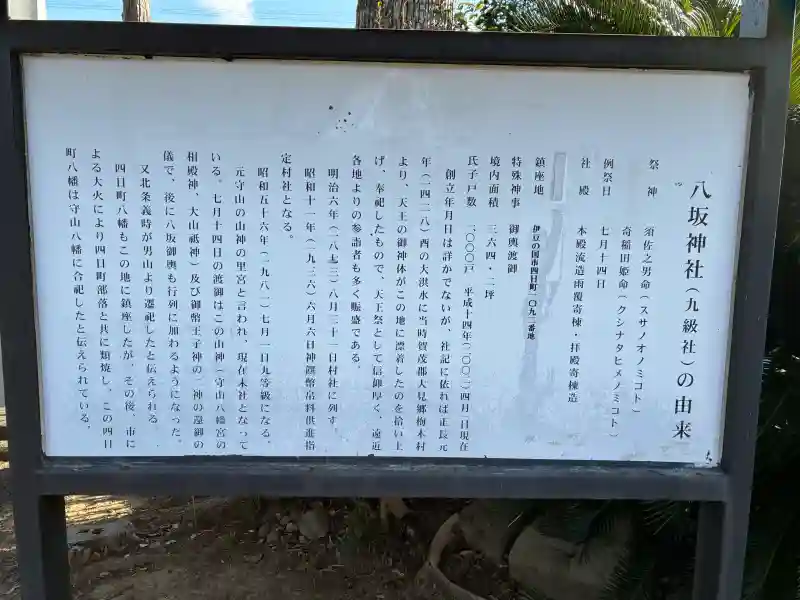 八坂神社（九級社）の由来
祭神　須佐之男命（スサノオノミコト）
奇稲田姫命（クシナタヒメノミコト）
例祭日　七月十四日
社殿　本殿流造雨覆寄棟・拝殿寄棟造
鎮座地　伊豆の国市四日町一〇九二番地
特殊神事　御輿渡御
境内面積　三六四・二坪
氏子戸数　二〇〇〇戸　平成十四年（二〇〇二）四月一日現在
創立年月日は詳かでないが、社記に依れば正長元
年（一四二八）酉の大洪水に当時賀茂郡大見郷梅木村
より、天王の御神体がこの地に漂着したのを拾い上
げ、奉祀したもので、天王祭として信仰厚く、遠近
各地よりの参詣者も多く賑盛である。
明治六年（一八七三）八月三十一日村社に列す。
昭和十一年（一九三六）六月六日神饌幣帛料供進指
定村社となる。
昭和五十六年（一九八一）七月一日九等級になる。
元守山の山神の里宮と言われ、現在末社となって
いる。七月十四日の渡御はこの山神（守山八幡宮の
相殿神、大山祗神）及び御幣王子神の二神の還御の
儀で、後に八坂御輿も行列に加わるようになった。
又北条義時が男山より遷祀したと伝えられる
四日町八幡もこの地に鎮座したが、その後、市に
よる大火により四日町部落と共に類焼し、この四日
町八幡は守山八幡に合祀したと伝えられている。